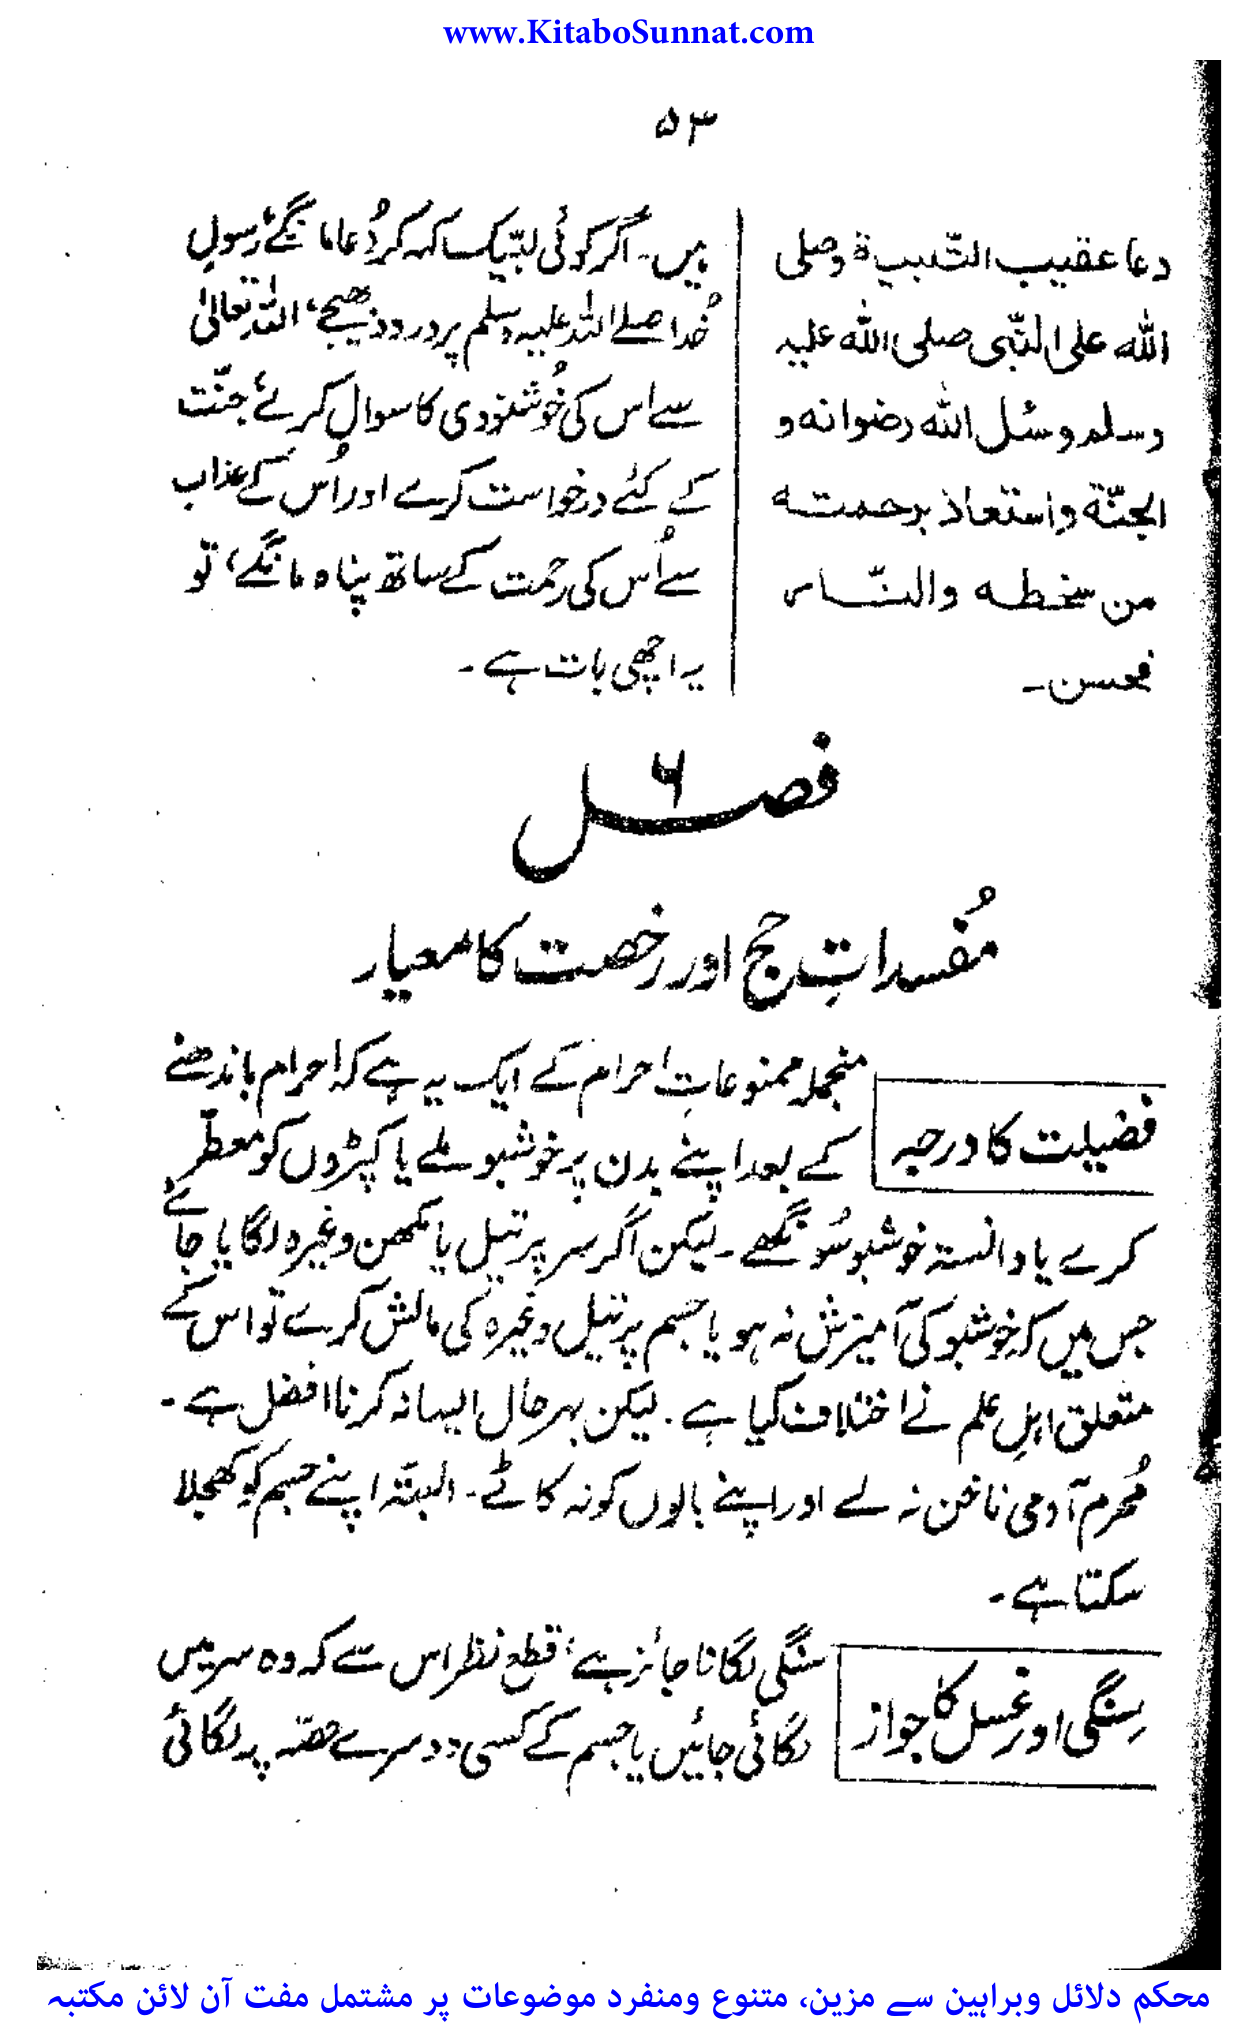 www.KitaboSunnat.com
۵۳
دعا عقیب التّلبیۃ وصلی
اللّٰه علی النّبی صلی اللّٰه علیہ
وسلم وسئل اللّٰه رضوانه و
الجنّة واستعاذ برحمته
من سخطه والنّار
فحسن۔
ہیں۔ اگر کوئی لبّیک کہہ کر دُعا مانگے، رسولِ
خُدا صلے اللہ علیہ وسلم پر درود بھیجے، اللہ تعالیٰ
سے اس کی خُوشنودی کا سوال کرے، جنّت
کے لئے درخواست کرے اور اُس کے عذاب
سے اُس کی رحمت کے ساتھ پناہ مانگے، تو
یہ اچھی بات ہے۔
فصل ۶
مُفسداتِ حج اور رخصت کا معیار
فضیلت کا درجہ
منجملہ ممنوعاتِ احرام کے ایک یہ ہے کہ احرام باندھنے
کے بعد اپنے بدن پر خوشبو ملے یا کپڑوں کو معطّر
کرے یا دانستہ خوشبو سُونگھے۔ لیکن اگر سر پر تیل یا مکھن وغیرہ لگایا جائے
جس میں کہ خوشبو کی آمیزش نہ ہو یا جسم پر تیل وغیرہ کی مالش کرے تو اس کے
متعلق اہلِ علم نے اختلاف کیا ہے۔ لیکن بہرحال ایسا نہ کرنا افضل ہے۔
مُحرم آدمی ناخن نہ لے اور اپنے بالوں کو نہ کاٹے۔ البتّہ اپنے جسم کو کھجلا
سکتا ہے۔
سِنگی اور غسل کا جواز
سنگی لگانا جائز ہے، قطع نظر اس سے کہ وہ سر میں
لگائی جائیں یا جسم کے کسی دوسرے حصّہ پر لگائی
محکم دلائل وبراہین سے مزین، متنوع ومنفرد موضوعات پر مشتمل مفت آن لائن مکتبہ